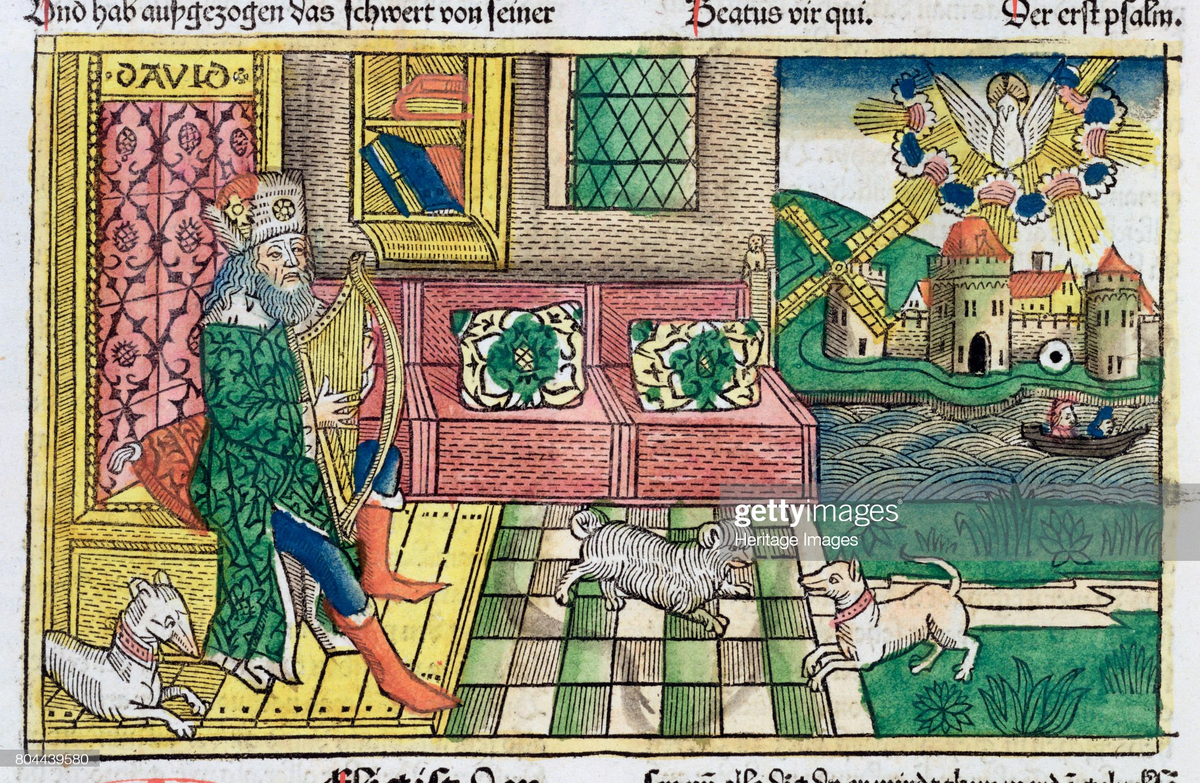 Und hab außgezogen das schwert von seiner
Beatus vir qui.
Der erst psalm.
DAVID
gettyimages
Heritage Images
804439580